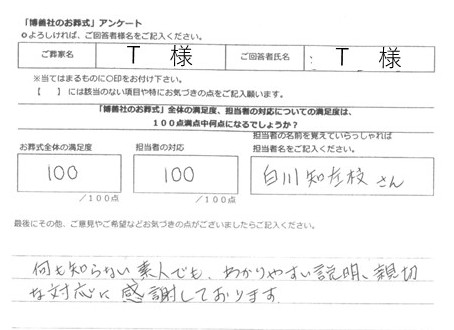 「博善社のお葬式」アンケート
○よろしければ、ご回答者様名をご記入ください。
ご葬家名 T 様 ご回答者氏名 T 様
※当てはまるものに○印をお付け下さい。
【 】には該当のない項目や特にお気づきの点をご記入願います。
「博善社のお葬式」全体の満足度、担当者の対応についての満足度は、
100点満点中何点になるでしょうか?
担当者の名前を覚えていらっしゃれば
お葬式全体の満足度 担当者の対応 担当者名をご記入ください。
100 100 白川 知左校 さん
/100点 /100点
最後にその他、ご意見やご希望などお気づきの点がございましたらご記入ください。
何も知らない素人でも、わかりやすい説明、親切
な対応に感謝しております